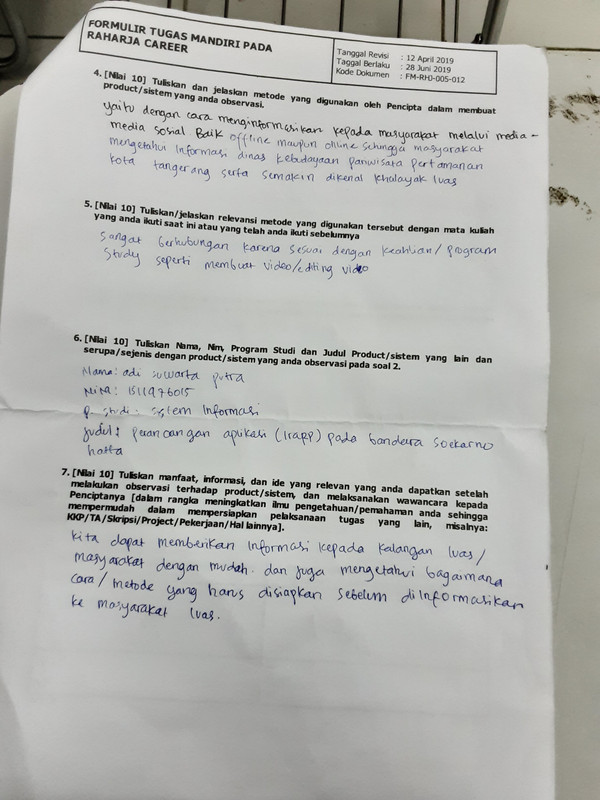 FORMULIR TUGAS MANDIRI PADA
RAHARJA CAREER
Tanggal Revisi : 12 April 2019
Tanggal Berlaku : 28 Juni 2019
Kode Dokumen : FM-RHJ-005-012
4. [Nilai 10] Tuliskan dan jelaskan metode yang digunakan oleh Pencipta dalam membuat
product/sistem yang anda observasi.
yaitu dengan cara menginformasikan kepada masyarakat melalui media-
media sosial Baik offline maupun online sehingga masyarakat
mengetahui Informasi dinas kebudayaan pariwisata pertamanan
kota tangerang serta semakin dikenal khalayak luas
5. [Nilai 10] Tuliskan/jelaskan relevansi metode yang digunakan tersebut dengan mata kuliah
yang anda ikuti saat ini atau yang telah anda ikuti sebelumnya
Sangat berhubungan karena sesuai dengan keahlian/program
Study seperti membuat video/editing video
6. [Nilai 10] Tuliskan Nama, Nim, Program Studi dan Judul Product/sistem yang lain dan
serupa/sejenis dengan product/sistem yang anda observasi pada soal 2.
Nama: adi suwarta putra
Nim: 1511976015
P. studi: system Informasi
Judul: perancangan aplikasi (Irapp) pada bandara Soekarno
hatta
7. [Nilai 10] Tuliskan manfaat, informasi, dan ide yang relevan yang anda dapatkan setelah
melakukan observasi terhadap product/sistem, dan melaksanakan wawancara kepada
Penciptanya [dalam rangka meningkatkan ilmu pengetahuan/pemahaman anda sehingga
mempermudah dalam mempersiapkan pelaksanaan tugas yang lain, misalnya:
KKP/TA/Skripsi/Project/Pekerjaan/Hal lainnya].
kita dapat memberikan Informasi kepada kalangan luas/
masyarakat dengan mudah. dan juga mengetahui bagaimana
cara/metode yang harus disiapkan sebelum diInformasikan
ke masyarakat luas.